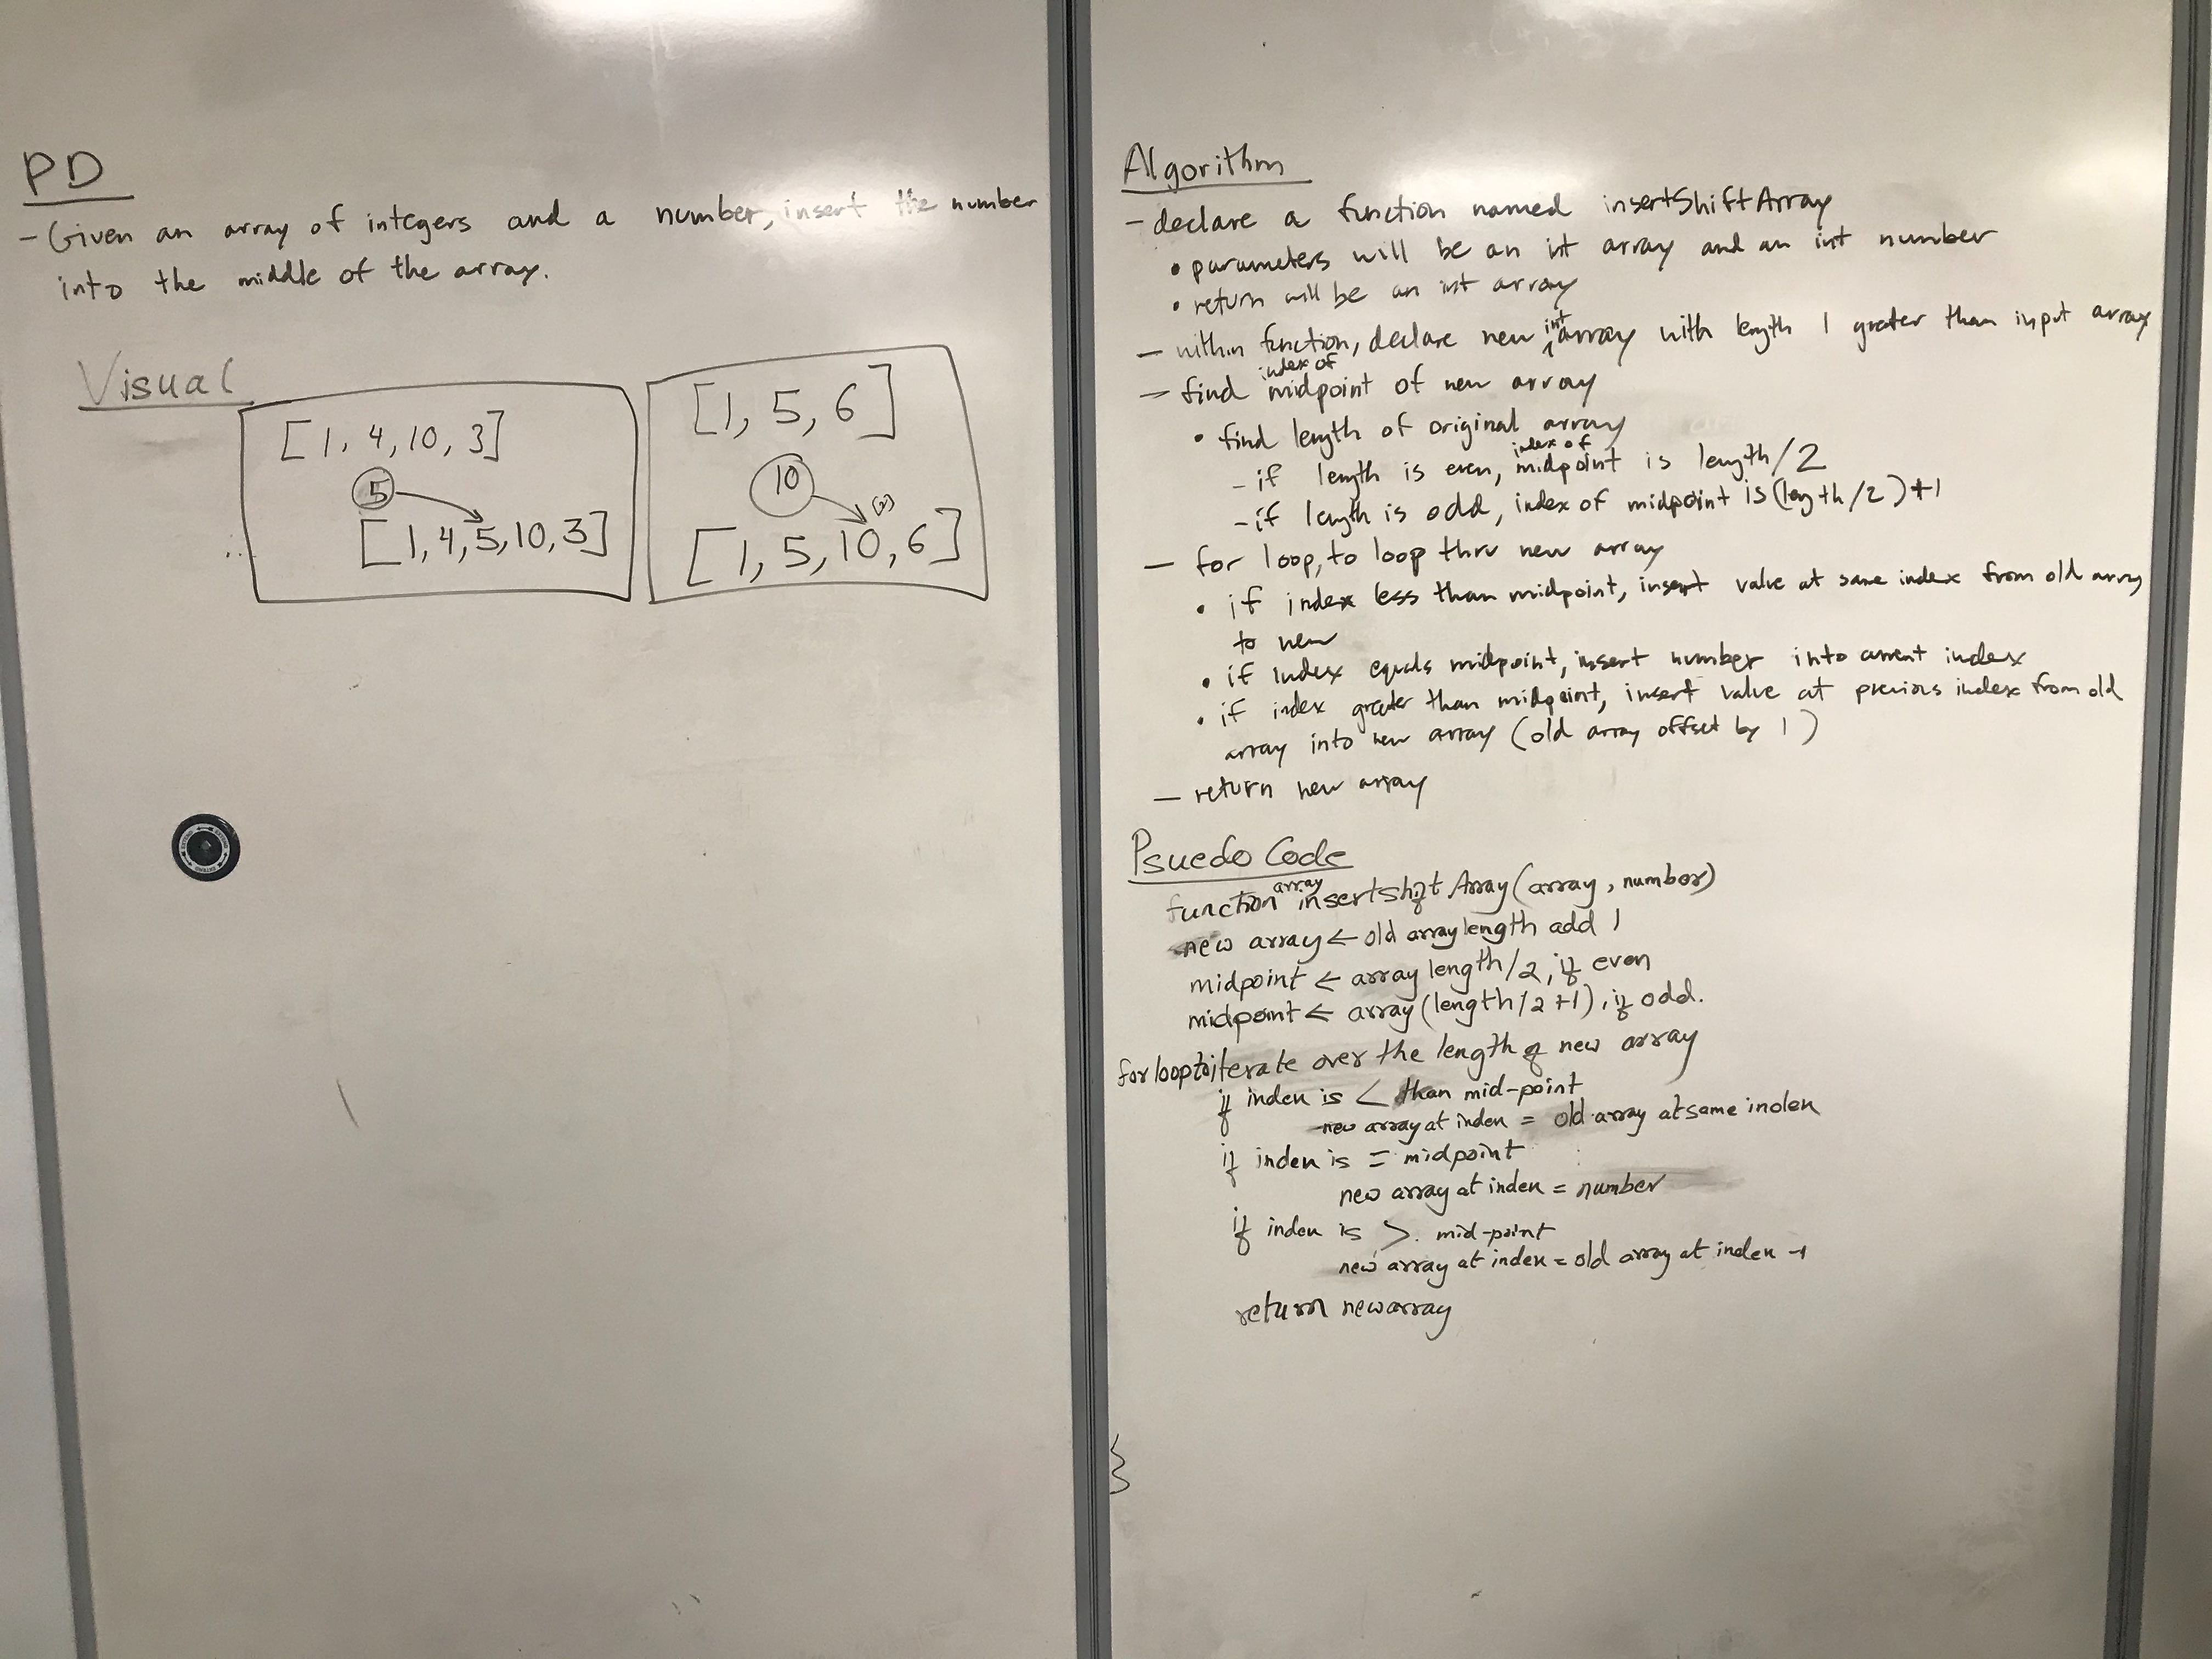 PD
- Given an array of integers and a number, insert the number
into the middle of the array.
Visual
[1, 4, 10, 3]
5
[1, 4, 5, 10, 3]
[1, 5, 6]
10
(2)
[1, 5, 10, 6]
Algorithm
- declare a function named insertShiftArray
• parameters will be an int array and an int number
• return will be an int array
- within function, declare new int array with length 1 greater than input array
- find index of midpoint of new array
• find length of original array
- if length is even, index of midpoint is length/2
- if length is odd, index of midpoint is (length/2)+1
- for loop, to loop thru new array
• if index less than midpoint, insert value at same index from old array
to new
• if index equals midpoint, insert number into current index
• if index greater than midpoint, insert value at previous index from old
array into new array (old array offset by 1)
- return new array
Psuedo Code
function array insertShift Array (array, number)
new array ← old array length add 1
midpoint ← array length/2, if even
midpoint ← array (length/2 +1), if odd.
for loop to iterate over the length of new array
if index is < than mid-point
new array at index = old array at same index
if index is = midpoint
new array at index = number
if index is > mid-point
new array at index = old array at index -1
return newarray